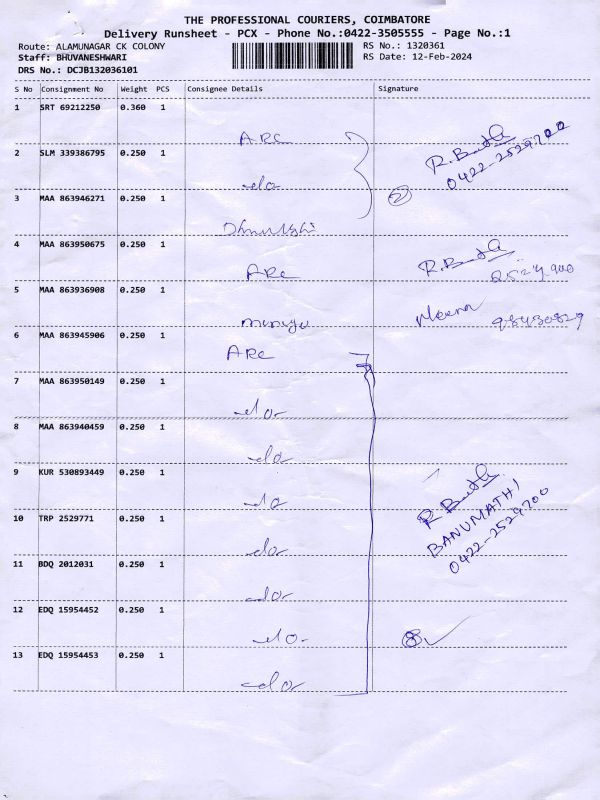 THE PROFESSIONAL COURIERS, COIMBATORE
Delivery Runsheet - PCX - Phone No.:0422-3505555 - Page No.:1
Route: ALAMUNAGAR CK COLONY RS No.: 1320361
Staff: BHUVANESHWARI RS Date: 12-Feb-2024
DRS No.: DCJB132036101
S No Consignment No Weight PCS Consignee Details Signature
1 SRT 69212250 0.360 1
ARC
R.
0422-2529700
2 SLM 339386795 0.250 1
do
2
3 MAA 863946271 0.250 1
4 MAA 863950675 0.250 1
ARC R.
2529900
5 MAA 863936908 0.250 1
Meena
6 MAA 863945906 0.250 1
ARC
7 MAA 863950149 0.250 1
do
8 MAA 863940459 0.250 1
do
9 KUR 530893449 0.250 1
do
R
BANUMATHI
0422-2529700
10 TRP 2529771 0.250 1
do
11 BDQ 2012031 0.250 1
do
12 EDQ 15954452 0.250 1
do
8
13 EDQ 15954453 0.250 1
do